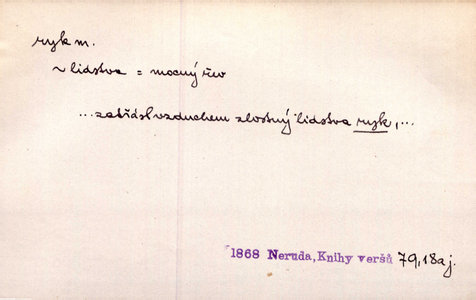 ryk m.
~ lidstva = mocný řev
...zatřásl vzduchem zlostný lidstva ryk,...
1868 Neruda, Knihy veršů 79,18aj.